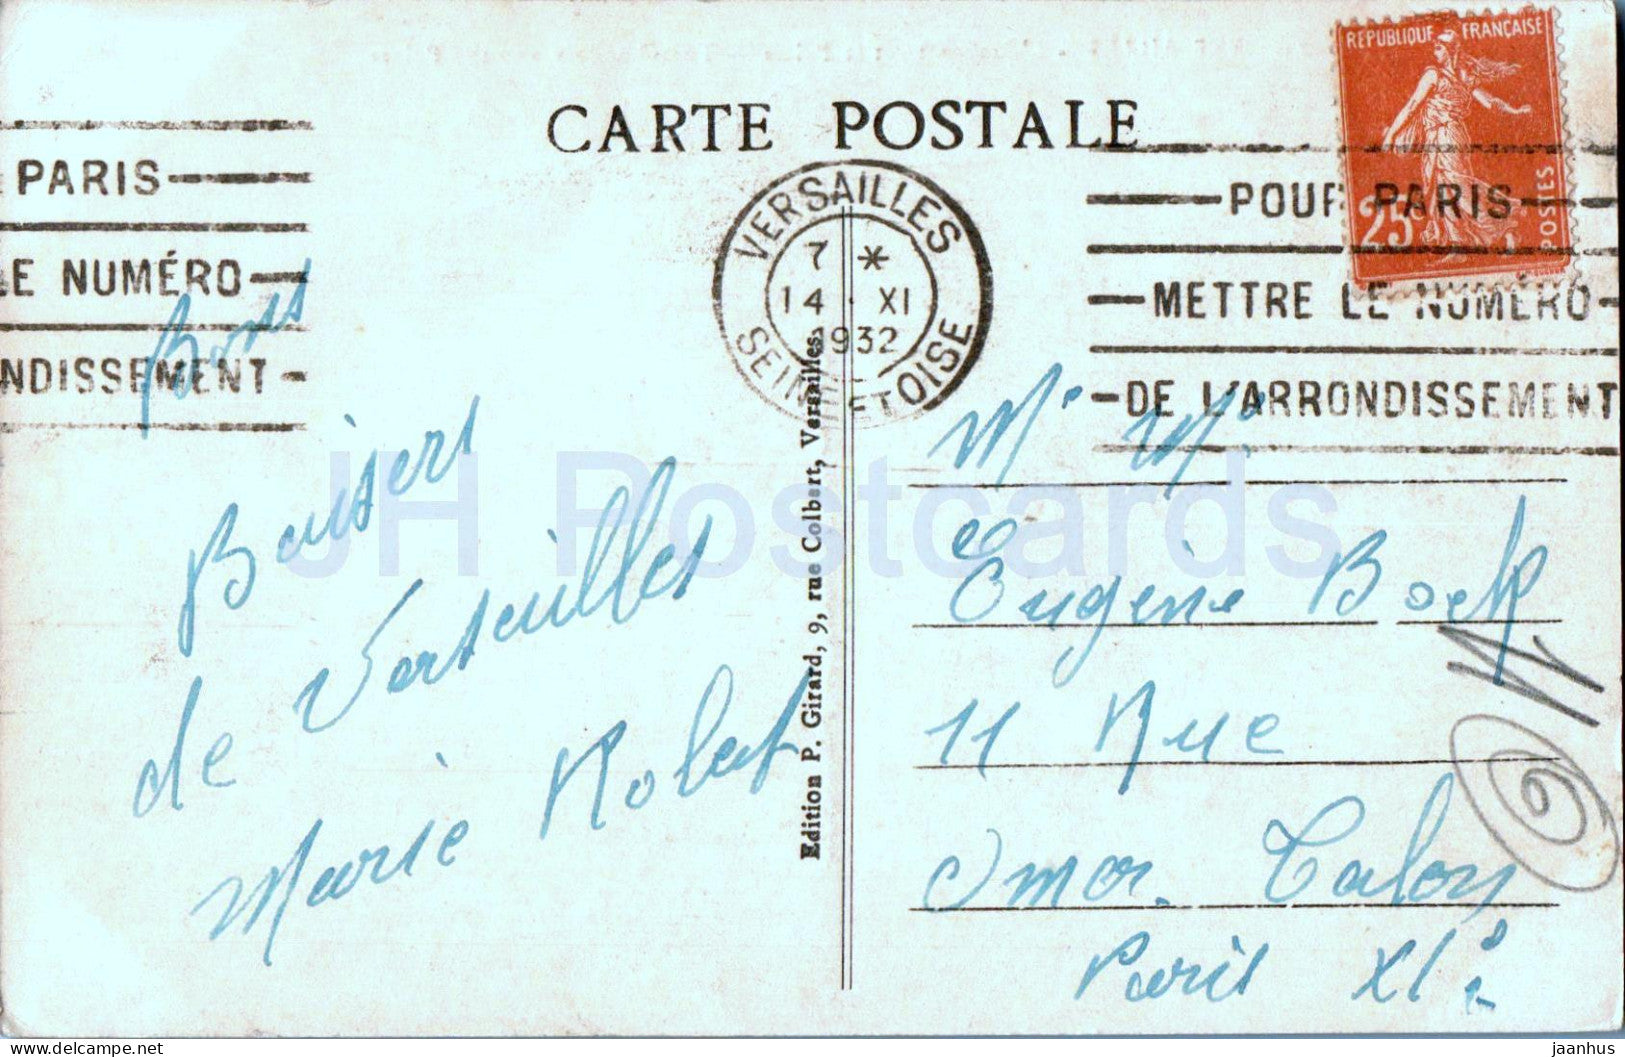 CARTE POSTALE
REPUBLIQUE FRANÇAISE
25
POSTES
PARIS
LE NUMÉRO
NDISSEMENT
VERSAILLES
7 *
14 XI
1932
SEINE ET OISE
POUR PARIS
METTRE LE NUMÉRO
DE L'ARRONDISSEMENT
Bons
Baisers
de Versailles
Marie Robert
Edition P. Girard, 9, rue Colbert, Versailles.
Mr Mr
Eugène
11 Rue
Omer Talon
Paris XIe
JH Postcards
delcampe.net
jaanhus